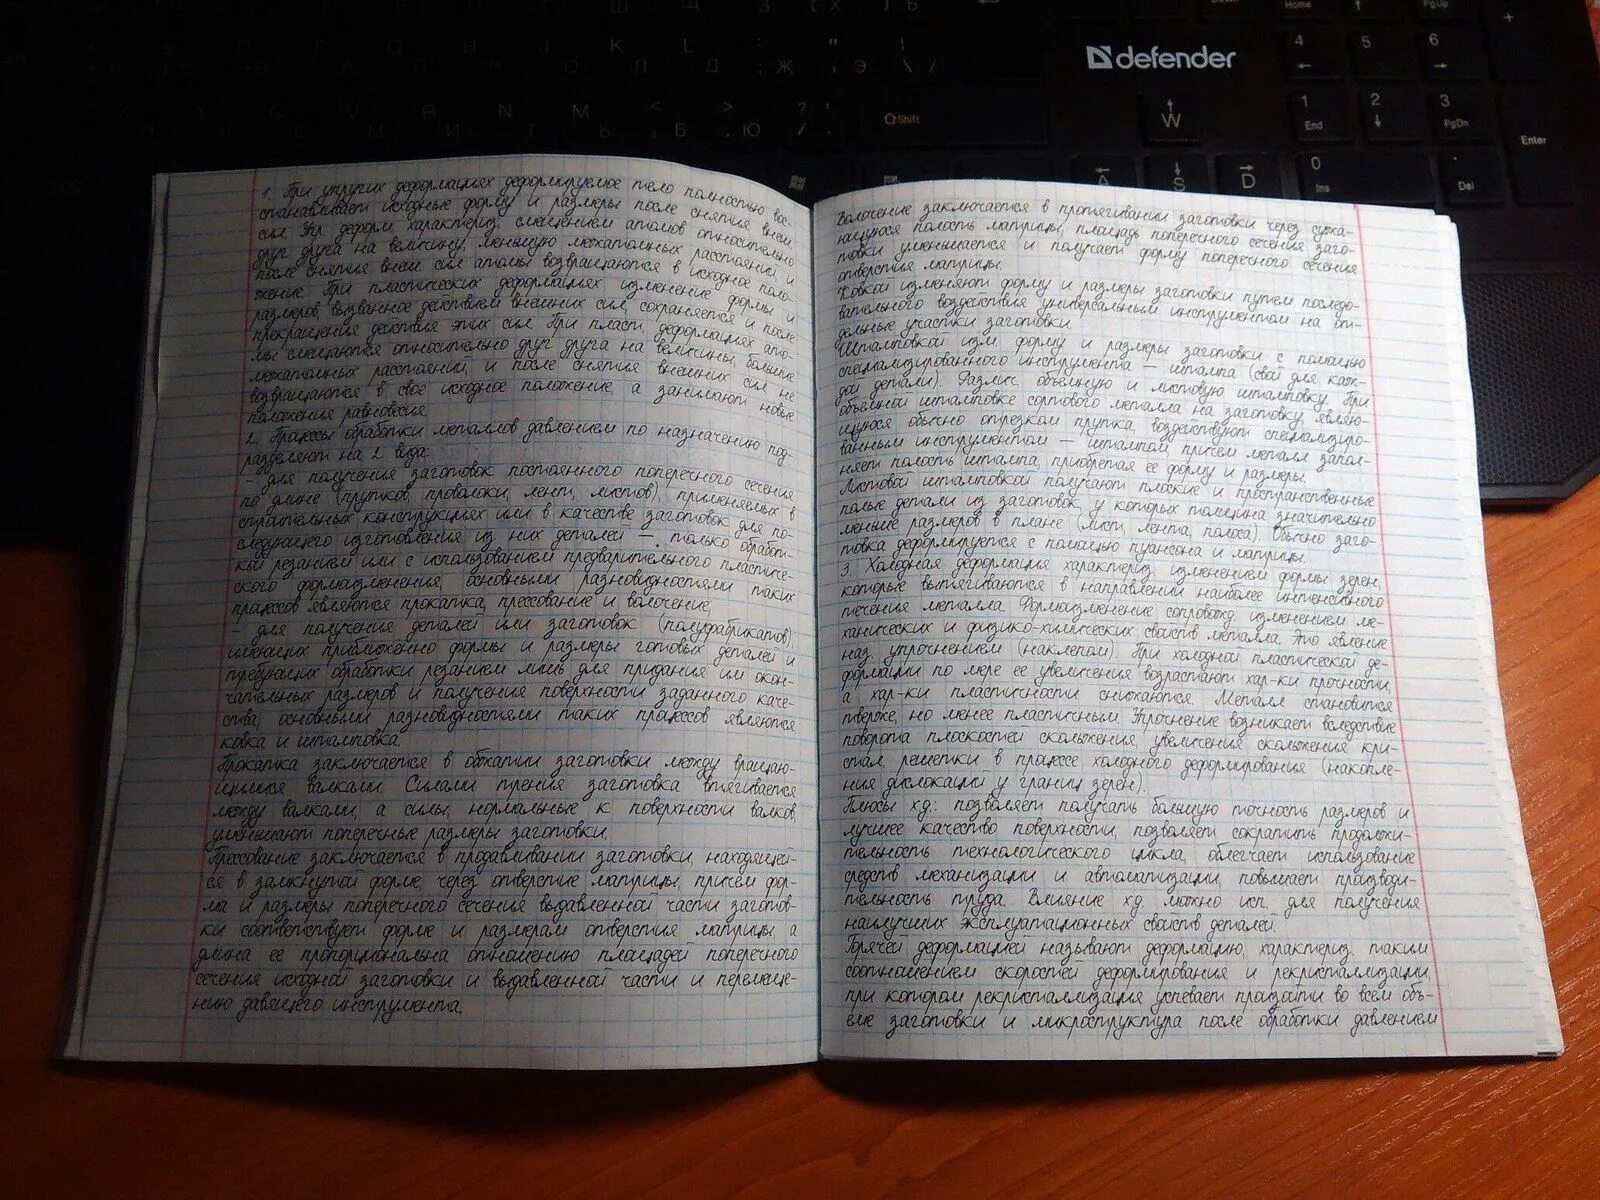 defender
1. При упругих деформациях деформируемое тело полностью вос-
станавливает исходные форму и размеры после снятия внеш.
сил. Упр. деформ. характериз. смещением атомов относительно
друг друга на величину, меньшую межатомных расстояний, и
после снятия внеш. сил атомы возвращаются в исходное поло-
жение. При пластических деформациях изменение формы и
размеров, вызванное действием внешних сил, сохраняется и после
прекращения действия этих сил. При пласт. деформациях ато-
мы смещаются относительно друг друга на величины, больше
межатомных расстояний, и после снятия внешних сил не
возвращаются в свое исходное положение, а занимают новые
положения равновесия.
2. Процессы обработки металлов давлением по назначению под-
разделяют на 2 вида:
- для получения заготовок постоянного поперечного сечения
по длине (прутков, проволоки, лент, листов), применяемых в
строительных конструкциях или в качестве заготовок для по-
следующего изготовления из них деталей — только обработ-
кой резанием или с использованием предварительного пластиче-
ского формоизменения, основными разновидностями таких
процессов являются прокатка, прессование и волочение;
- для получения деталей или заготовок (полуфабрикатов),
имеющих приближенно формы и размеры готовых деталей и
требующих обработки резанием лишь для придания им окон-
чательных размеров и получения поверхности заданного каче-
ства, основными разновидностями таких процессов являются
ковка и штамповка.
Прокатка заключается в обжатии заготовки между вращаю-
щимися валками. Силами трения заготовка втягивается
между валками, а силы, нормальные к поверхности валков,
уменьшают поперечные размеры заготовки.
Прессование заключается в продавливании заготовки, находящей-
ся в замкнутой форме, через отверстие матрицы, причем фор-
ма и размеры поперечного сечения выдавленной части заготов-
ки соответствует форме и размерам отверстия матрицы, а
длина ее пропорциональна отношению площадей поперечного
сечения исходной заготовки и выдавленной части и перемеще-
нию давящего инструмента.
Волочение заключается в протягивании заготовки через сужа-
ющуюся полость матрицы, площадь поперечного сечения заго-
товки уменьшается и получает форму поперечного сечения
отверстия матрицы.
Ковкой изменяют форму и размеры заготовки путем последо-
вательного воздействия универсальным инструментом на от-
дельные участки заготовки.
Штамповкой изм. форму и размеры заготовки с помощью
специализированного инструмента — штампа (свой для каж-
дой детали). Различ. объемную и листовую штамповку. При
объемной штамповке сортового металла на заготовку, являю-
щуюся обычно отрезком прутка, воздействуют специализиро-
ванным инструментом — штампом, причем металл запол-
няет полость штампа, приобретая ее форму и размеры.
Листовой штамповкой получают плоские и пространственные
полые детали из заготовок, у которых толщина значительно
меньше размеров в плане (лист, лента, полоса). Обычно заго-
товка деформируется с помощью пуансона и матрицы.
3. Холодная деформация характериз. изменением формы зерен,
которые вытягиваются в направлении наиболее интенсивного
течения металла. Формоизменение сопровожд. изменением ме-
ханических и физико-химических свойств металла. Это явление
наз. упрочнением (наклепом). При холодной пластической де-
формации по мере ее увеличения возрастают хар-ки прочности,
а хар-ки пластичности снижаются. Металл становится
тверже, но менее пластичным. Упрочнение возникает вследствие
поворота плоскостей скольжения, увеличения скольжения кри-
стал. решетки в процессе холодного деформирования (накопле-
ния дислокаций у границ зерен).
Плюсы х.д.: позволяет получать большую точность размеров и
лучшее качество поверхности, позволяет сократить продолжи-
тельность технологического цикла, облегчает использование
средств механизации и автоматизации, повышает производи-
тельность труда. Влияние х.д. можно исп. для получения
наилучших эксплуатационных свойств деталей.
Горячей деформацией называют деформацию, характериз. таким
соотношением скоростей деформирования и рекристаллизации,
при котором рекристаллизация успевает произойти во всем объ-
еме заготовки и микроструктура после обработки давлением